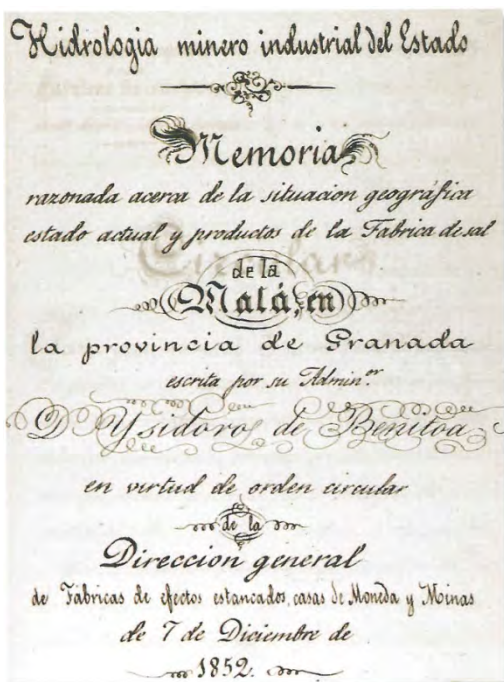 Hidrologia minero industrial del Estado
Memoria
razonada acerca de la situacion geográfica
estado actual y productos de la Fabrica de sal
de la
Malá, en
la provincia de Granada
escrita por su Admin.or
D. Ysidoro de Benitoa
en virtud de orden circular
de la
Direccion general
de Fábricas de efectos estancados, casas de Moneda y Minas
de 7 de Diciembre de
1852.